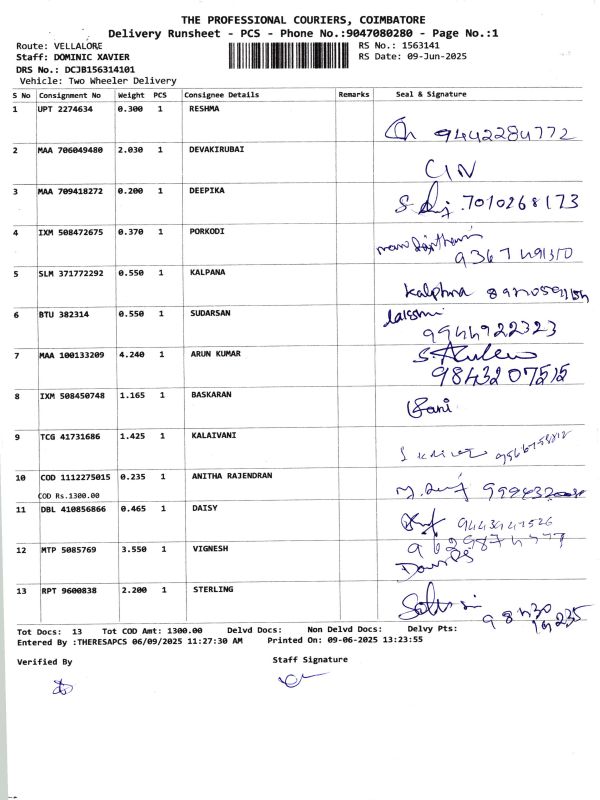 THE PROFESSIONAL COURIERS, COIMBATORE
Delivery Runsheet - PCS - Phone No.:9047080280 - Page No.:1
Route: VELLALORE
RS No.: 1563141
Staff: DOMINIC XAVIER
RS Date: 09-Jun-2025
DRS No.: DCJB156314101
Vehicle: Two Wheeler Delivery
S No Consignment No Weight PCS Consignee Details Remarks Seal & Signature
1 UPT 2274634 0.300 1 RESHMA
9442284772
2 MAA 706049480 2.030 1 DEVAKIRUBAI
3 MAA 709418272 0.200 1 DEEPIKA
7010268173
4 IXM 508472675 0.370 1 PORKODI
5 SLM 371772292 0.550 1 KALPANA
kalphna
6 BTU 382314 0.550 1 SUDARSAN
9944922323
7 MAA 100133209 4.240 1 ARUN KUMAR
9843207515
8 IXM 508450748 1.165 1 BASKARAN
9 TCG 41731686 1.425 1 KALAIVANI
10 COD 1112275015 0.235 1 ANITHA RAJENDRAN
COD Rs.1300.00
11 DBL 410856866 0.465 1 DAISY
12 MTP 5085769 3.550 1 VIGNESH
13 RPT 9600838 2.200 1 STERLING
Tot Docs: 13 Tot COD Amt: 1300.00 Delvd Docs: Non Delvd Docs: Delvy Pts:
Entered By :THERESAPCS 06/09/2025 11:27:30 AM Printed On: 09-06-2025 13:23:55
Verified By
Staff Signature